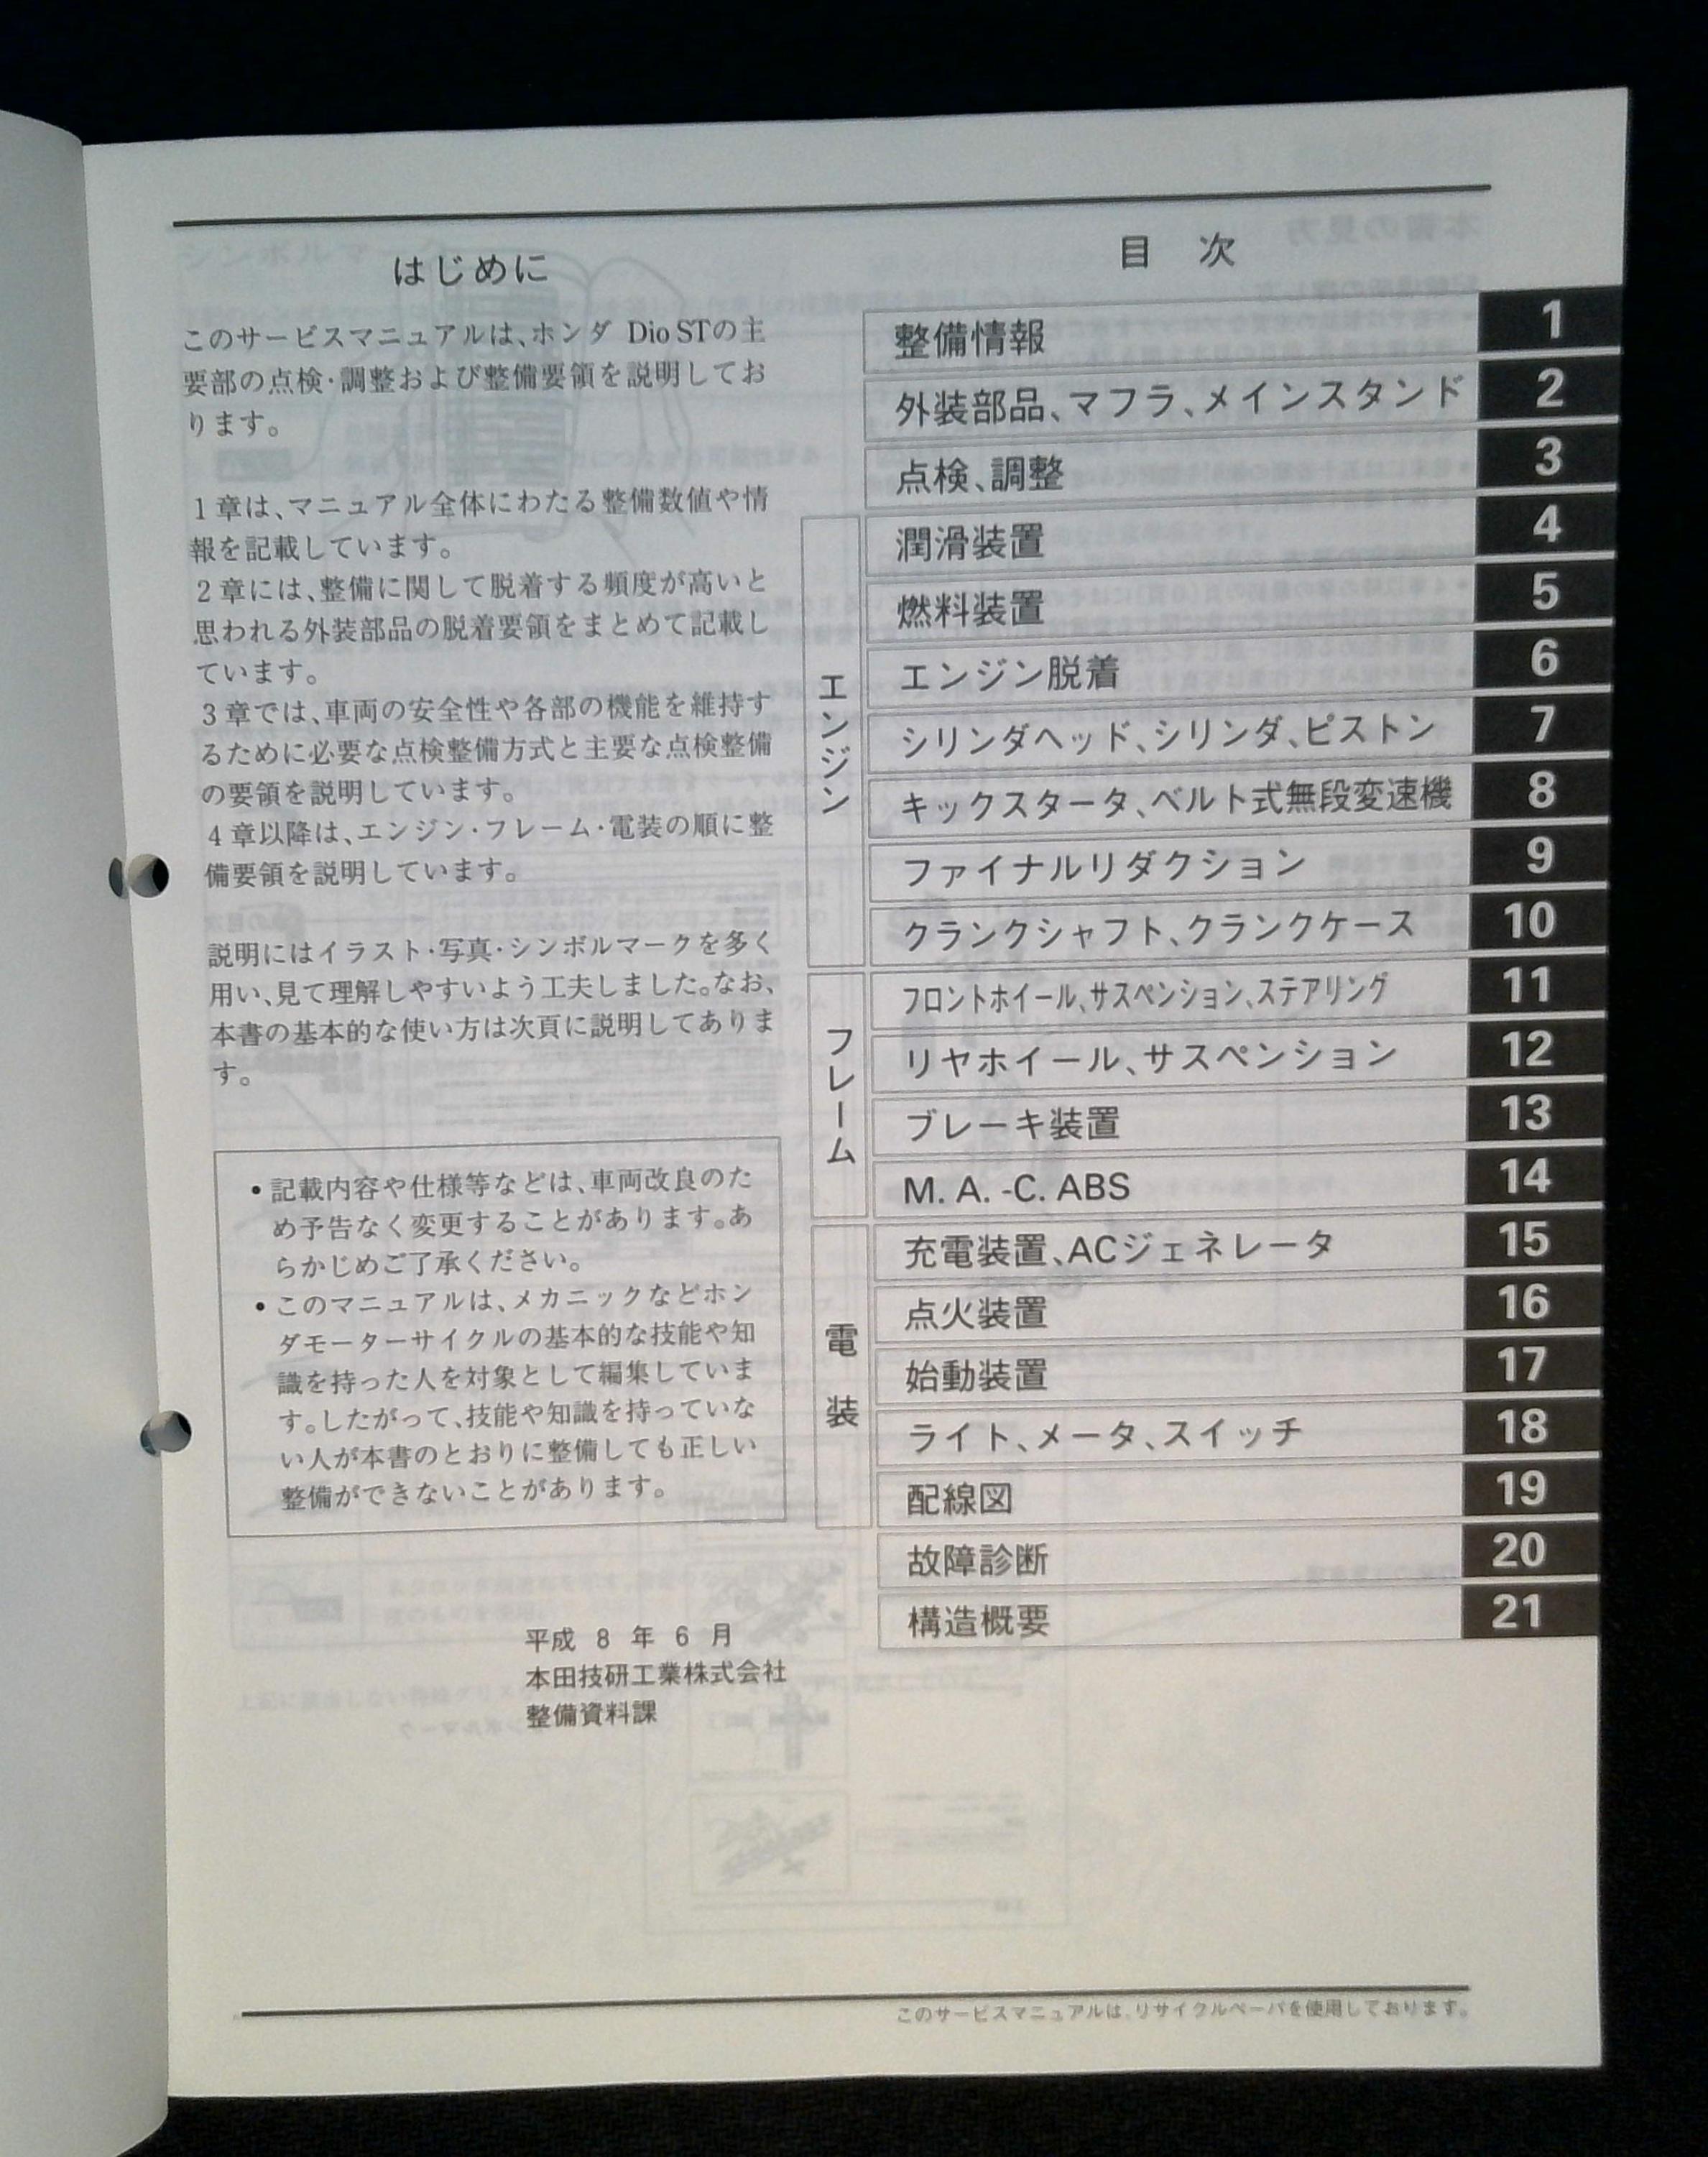 はじめに
このサービスマニュアルは、ホンダ Dio STの主
要部の点検・調整および整備要領を説明してお
ります。
1章は、マニュアル全体にわたる整備数値や情
報を記載しています。
2章には、整備に関して脱着する頻度が高いと
思われる外装部品の脱着要領をまとめて記載し
ています。
3章では、車両の安全性や各部の機能を維持す
るために必要な点検整備方式と主要な点検整備
の要領を説明しています。
4章以降は、エンジン・フレーム・電装の順に整
備要領を説明しています。
説明にはイラスト・写真・シンボルマークを多く
用い、見て理解しやすいよう工夫しました。なお、
本書の基本的な使い方は次頁に説明してありま
す。
• 記載内容や仕様等などは、車両改良のた
め予告なく変更することがあります。あ
らかじめご了承ください。
• このマニュアルは、メカニックなどホン
ダモーターサイクルの基本的な技能や知
識を持った人を対象として編集していま
す。したがって、技能や知識を持っていな
い人が本書のとおりに整備しても正しい
整備ができないことがあります。
平成 8 年 6 月
本田技研工業株式会社
整備資料課
目 次
整備情報 1
外装部品、マフラ、メインスタンド 2
点検、調整 3
エンジン
潤滑装置 4
燃料装置 5
エンジン脱着 6
シリンダヘッド、シリンダ、ピストン 7
キックスタータ、ベルト式無段変速機 8
ファイナルリダクション 9
クランクシャフト、クランクケース 10
フレーム
フロントホイール、サスペンション、ステアリング 11
リヤホイール、サスペンション 12
ブレーキ装置 13
M. A. -C. ABS 14
電装
充電装置、ACジェネレータ 15
点火装置 16
始動装置 17
ライト、メータ、スイッチ 18
配線図 19
故障診断 20
構造概要 21
このサービスマニュアルは、リサイクルペーパを使用しております。